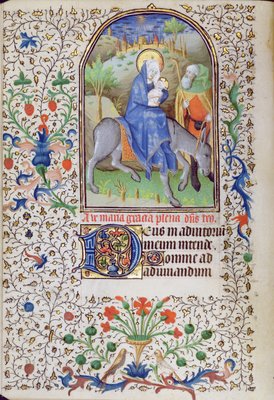 Aue maria gracia plena dñs tec
Deus in adiutoriũ
meum intende.
Domine ad
adiuuandum